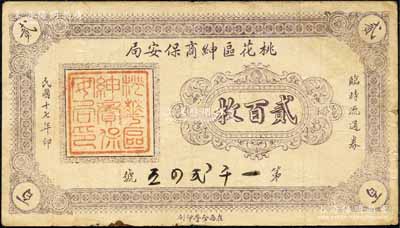 貳 貳
局安保商紳區花桃
臨時流通券
枚百貳
民國十七年印
桃花區
紳商保
安局印
第 一千弍四五 號
百 百